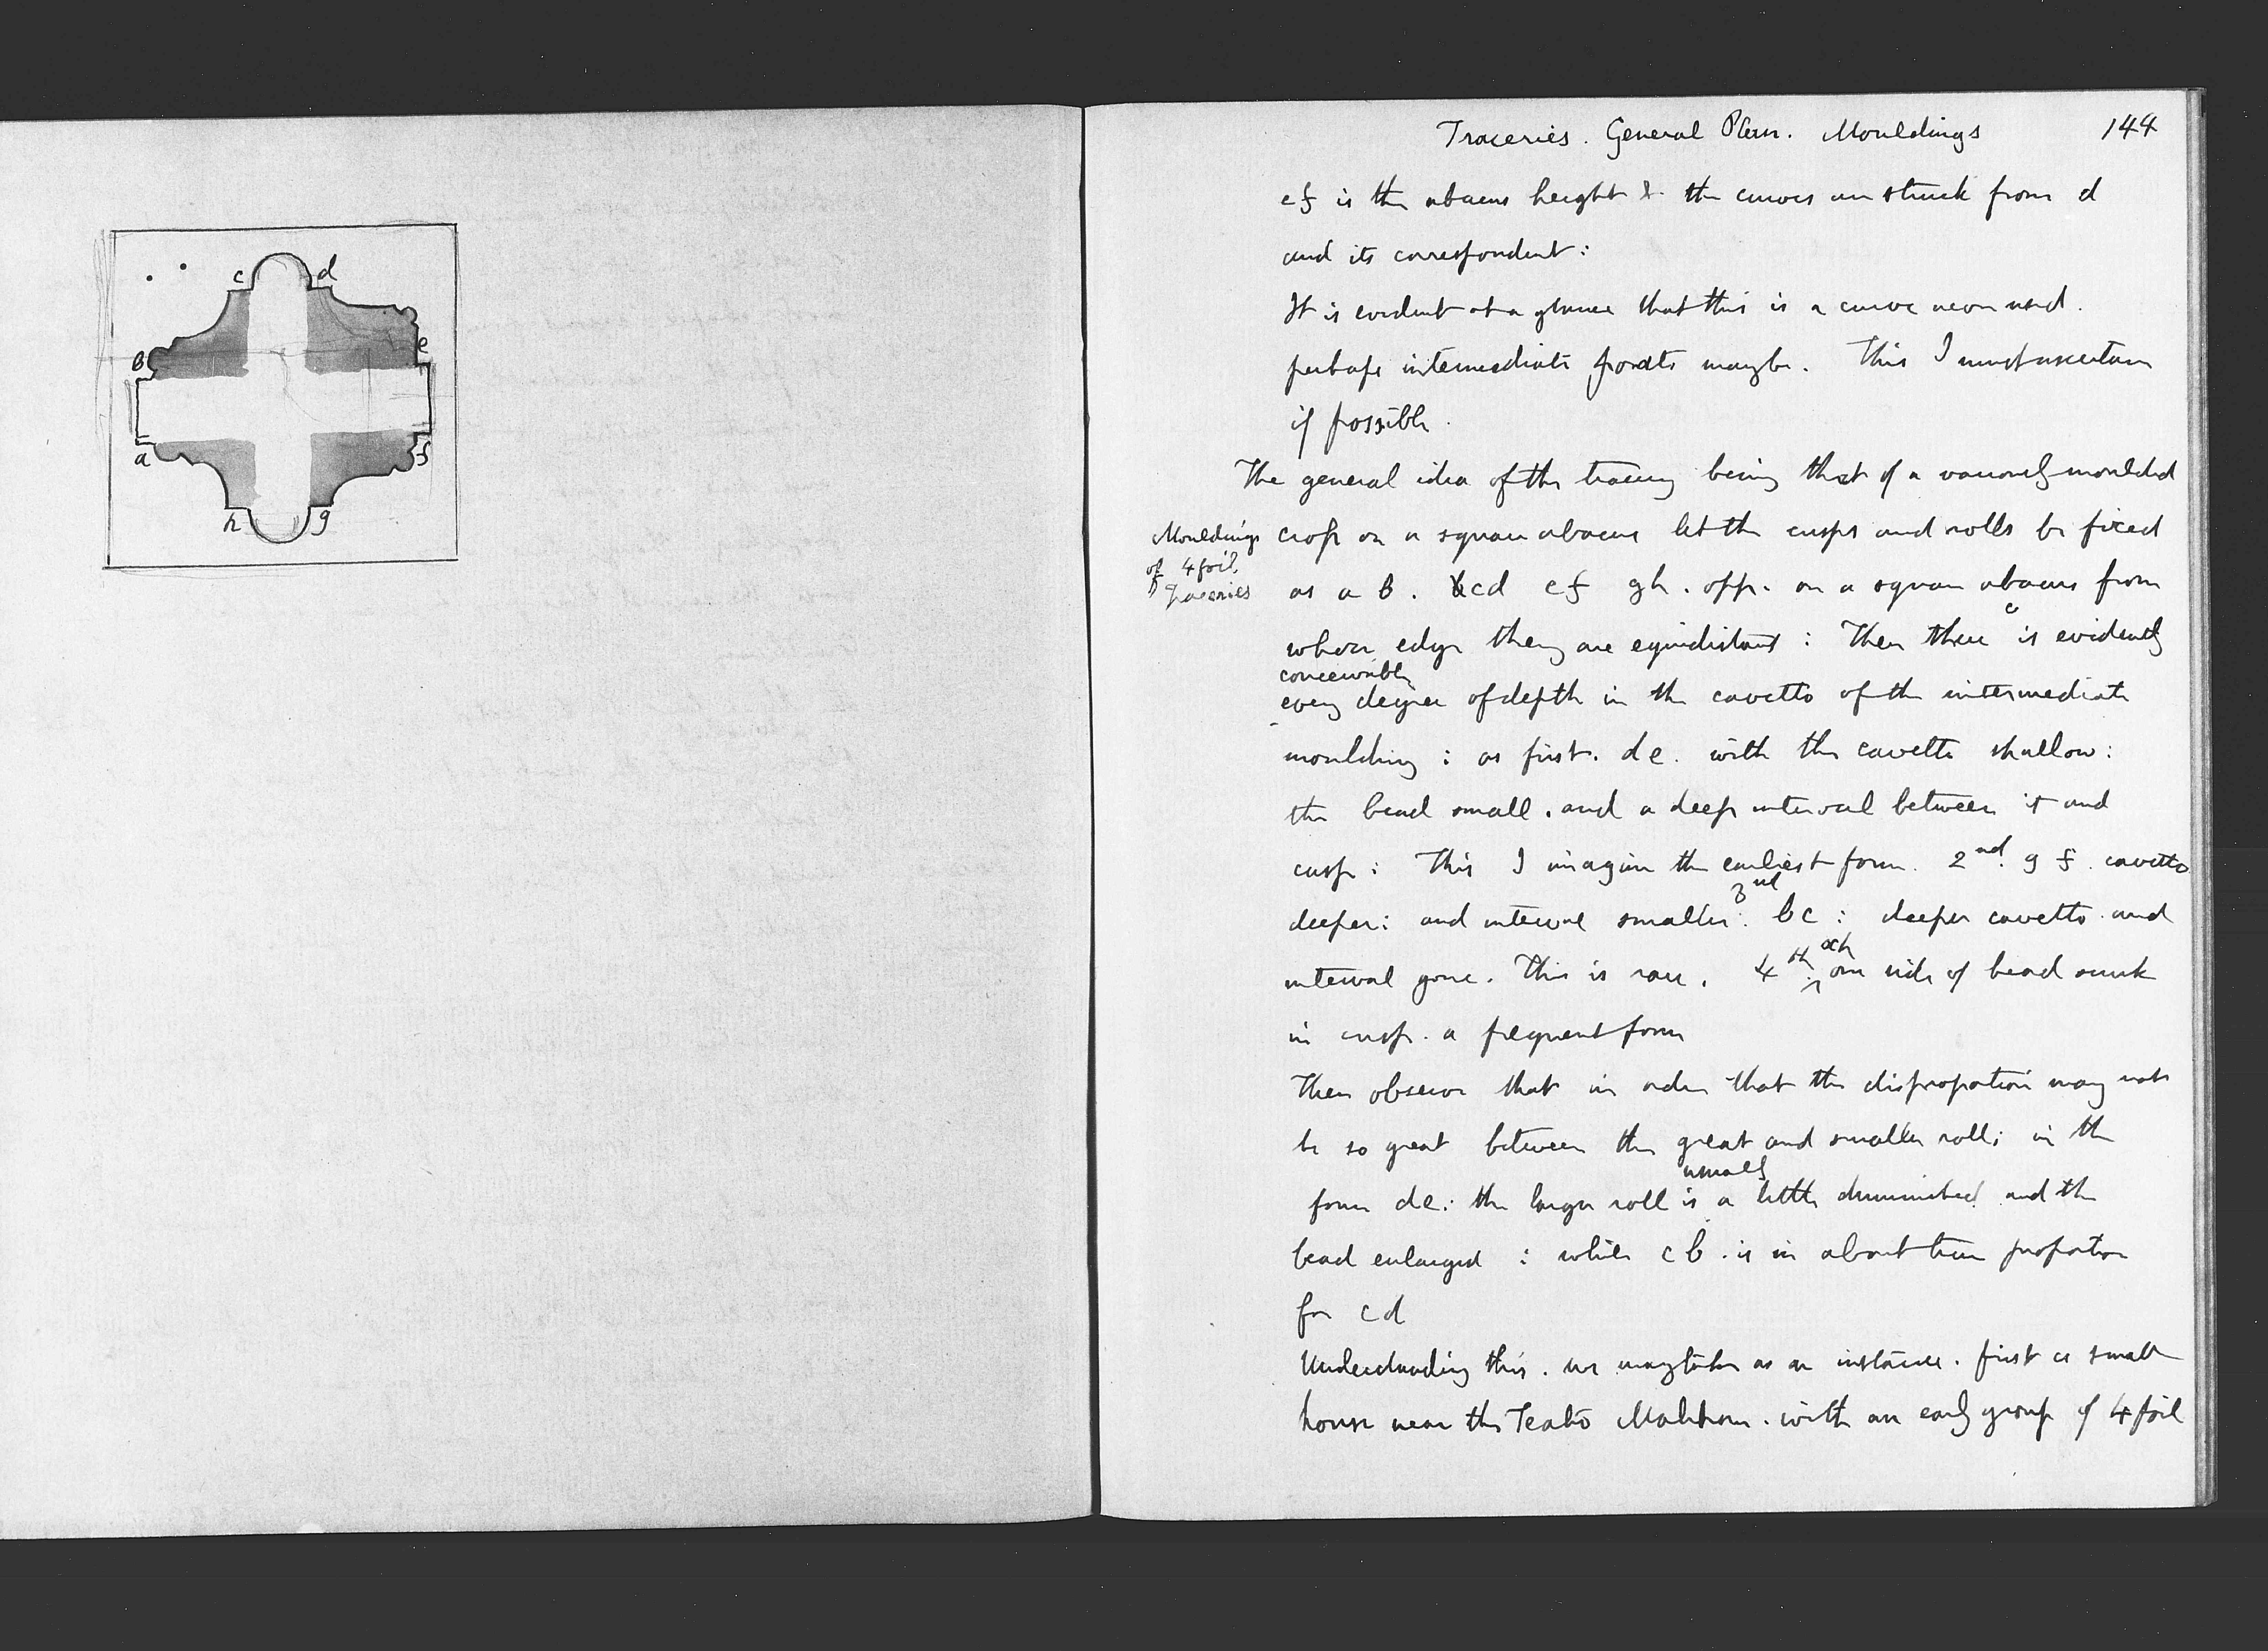 c d
B e
a f
h g
Traceries. General Plan. Mouldings 144
ef is the abacus height & the curves are struck from d
and its correspondent:
It is evident at a glance that this is a curve never used.
perhaps intermediate points maybe. This I must ascertain
if possible.
The general idea of the tracery being that of a variously moulded
Mouldings
of 4foil
Traceries
cross on a square abacus let the cusps and rolls be fixed
as a B. cd ef gh. opp. on a square abacus from
whose edge they are equidistant: Then there is evidently
conceivably
every degree of depth in the cavetto of the intermediate
moulding: as first. de. with the cavetto shallow:
the bead small. and a deep interval between it and
cusp: This I imagine the earliest form. 2nd. g f. cavetto
deeper: and interval smaller: 3rd bc: deeper cavetto and
interval gone. This is rare. 4th. one side of bead sunk
in cusp. a frequent form
Then observe that in order that the disproportion may not
be so great between the great and smaller roll; in the
usually
form de: the larger roll is a little diminished and the
bead enlarged: while cb. is in about true proportion
for cd
Understanding this. we may take as an instance. first a small
house near the Teatro Malibran. with an early group of 4foil